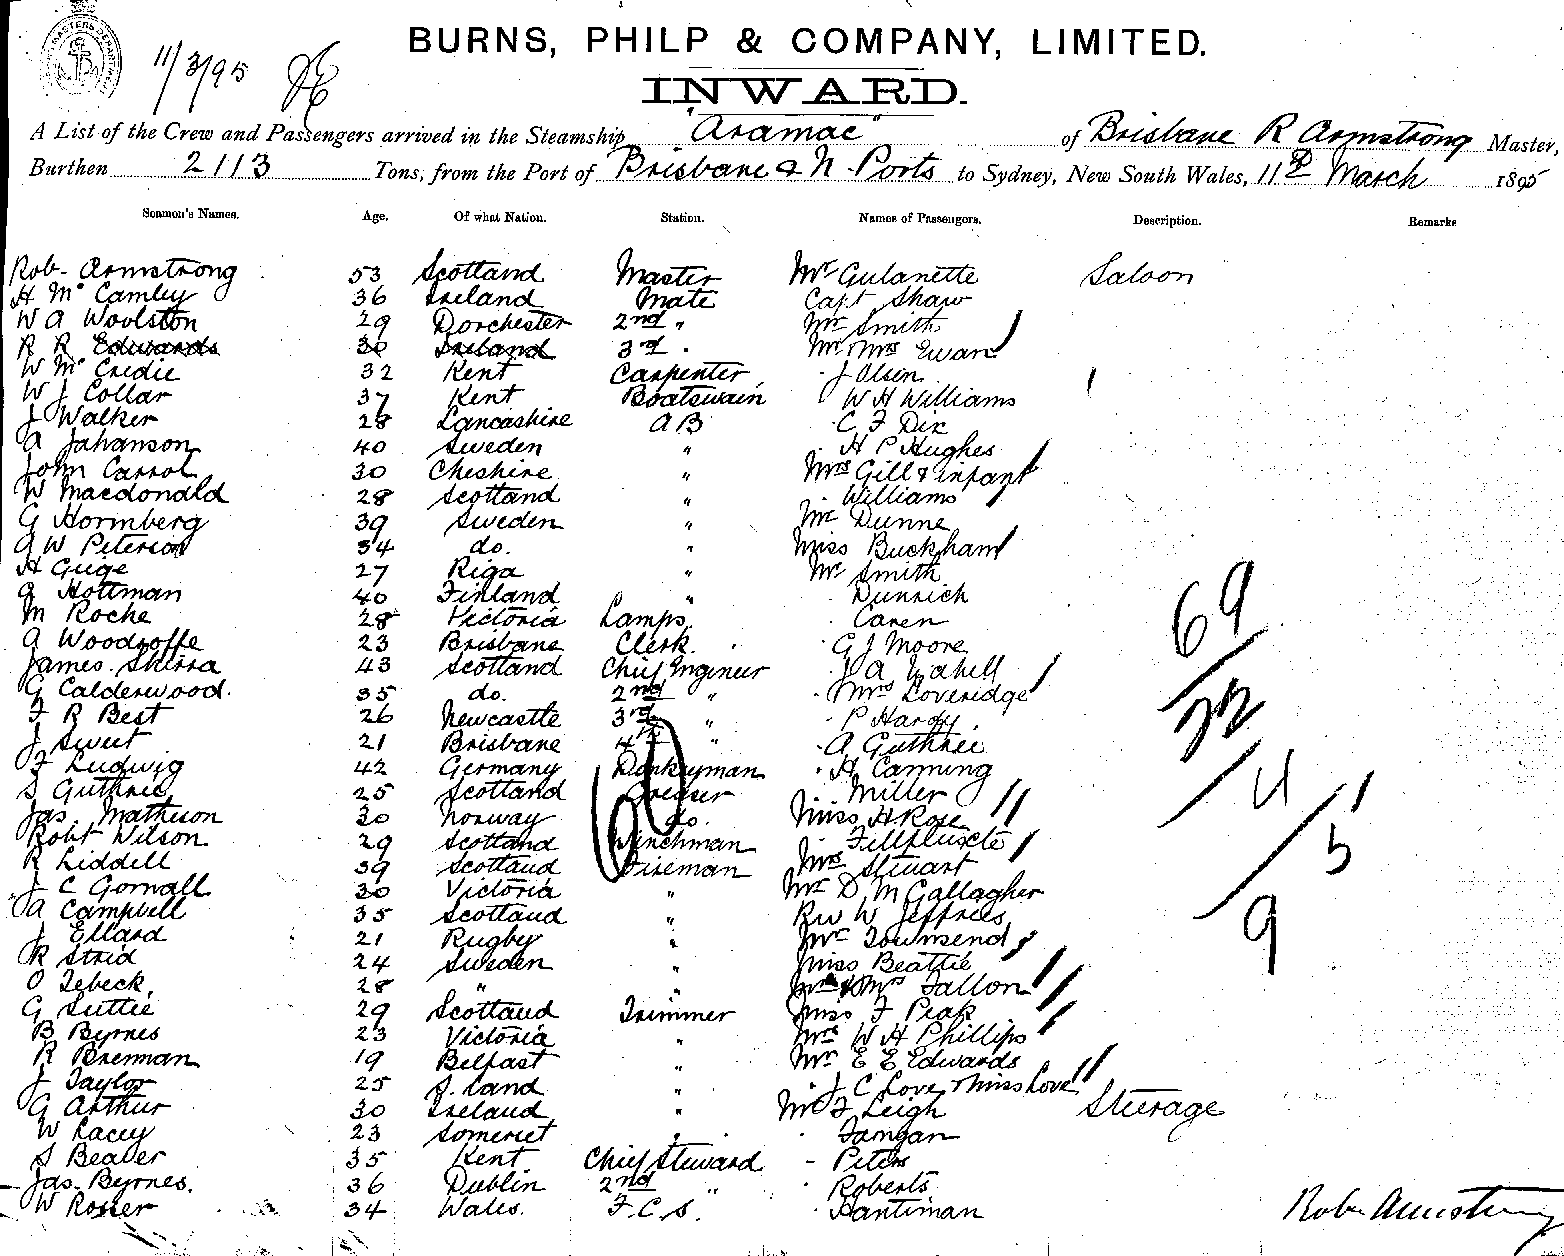 11/3/95
BURNS, PHILP & COMPANY, LIMITED.
INWARD.
A List of the Crew and Passengers arrived in the Steamship "Aramac" of Brisbane R Armstrong Master,
Burthen 2113 Tons, from the Port of Brisbane & N. Ports to Sydney, New South Wales, 11th March 1895
Seamen's Names. Age. Of what Nation. Station. Names of Passengers. Description. Remarks
Rob. Armstrong 53 Scotland Master Mr Gulanette Saloon
H Mc Camley 36 Ireland Mate Capt Shaw
W A Woolston 29 Dorchester 2nd " Mr Smith
R R Edwards 30 Ireland 3rd " Mr & Mrs Ewan
W Mc Credie 32 Kent Carpenter J Olsen
W J Collar 37 Kent Boatswain W H Williams
J Walker 28 Lancashire A B C F Dix
A Johanson 40 Sweden " H P Hughes
John Carrol 30 Cheshire " Mrs Gill & infant
W Macdonald 28 Scotland " Williams
G Hormberg 39 Sweden " Mr Dunne
A W Peterson 34 do. " Miss Buckham
H Guge 27 Riga " Mr Smith
A Hottman 40 Finland " Dunrich
M Roche 28 Victoria Lamps Caren
A Woodroffe 23 Brisbane Clerk. G J Moore
James Skirra 43 Scotland Chief Engineer J A Cahill
G Calderwood. 35 do. 2nd " Mrs Loveridge
F R Best 26 Newcastle 3rd " P Hardy
J Sweet 21 Brisbane 4th " A Guthrie
F Ludwig 42 Germany Donkeyman H Canning
S Guthrie 25 Scotland Greaser Miller
Jas. Matheson 30 Norway do. Miss H Rose
Robt Wilson 29 Scotland Winchman
R Liddell 39 Scotland Fireman Mrs Stewart
J C Gornall 30 Victoria " Mr D McGallagher
A Campbell 35 Scotland " Rev W Jeffries
J Ellard 21 Rugby " Mr Townsend
R Strid 24 Sweden " Miss Beattie
O Tebeck 28 " " Mr & Mrs Fallon
G Suttie 29 Scotland Trimmer Miss F Peak
B Byrnes 23 Victoria " Mrs W H Phillips
R Brennan 19 Belfast " Mr E E Edwards
J Taylor 25 S. Land " J C Love & Miss Love
G Arthur 30 Ireland " Mr F Leigh Steerage
W Lacey 23 Somerset " Famgan
S Beaver 35 Kent Chief Steward Peters
Jas. Byrnes. 36 Dublin 2nd " Roberts
W Rosser 34 Wales. F.C.S. Hantiman
60
69
72
4
5
9
Robt Armstrong